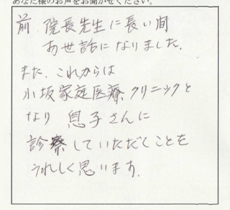 あなた様のお声をお聞かせください。
前 院長先生に長い間
お世話になりました。
また、これからは
小坂家庭医療クリニックと
なり 息子さんに
診察していただくことを
うれしく思います。